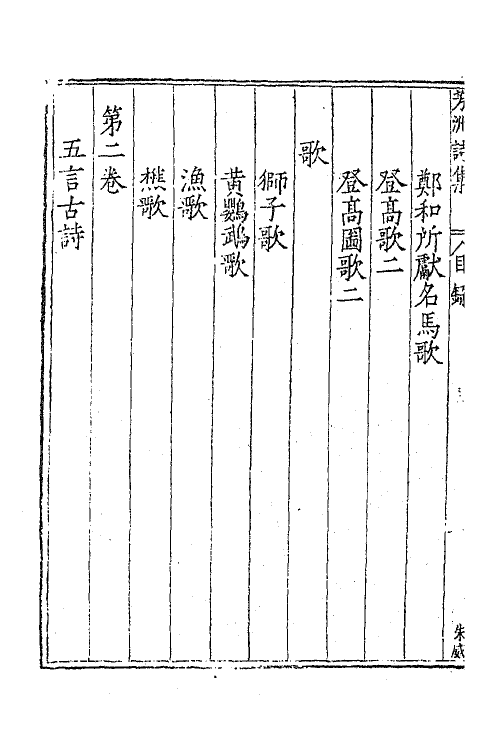 芳洲詩集 目錄
鄭和所獻名馬歌
登高歌二
登高圖歌二
歌
獅子歌
黃鸚鵡歌
漁歌
樵歌
第二卷
五言古詩
朱威